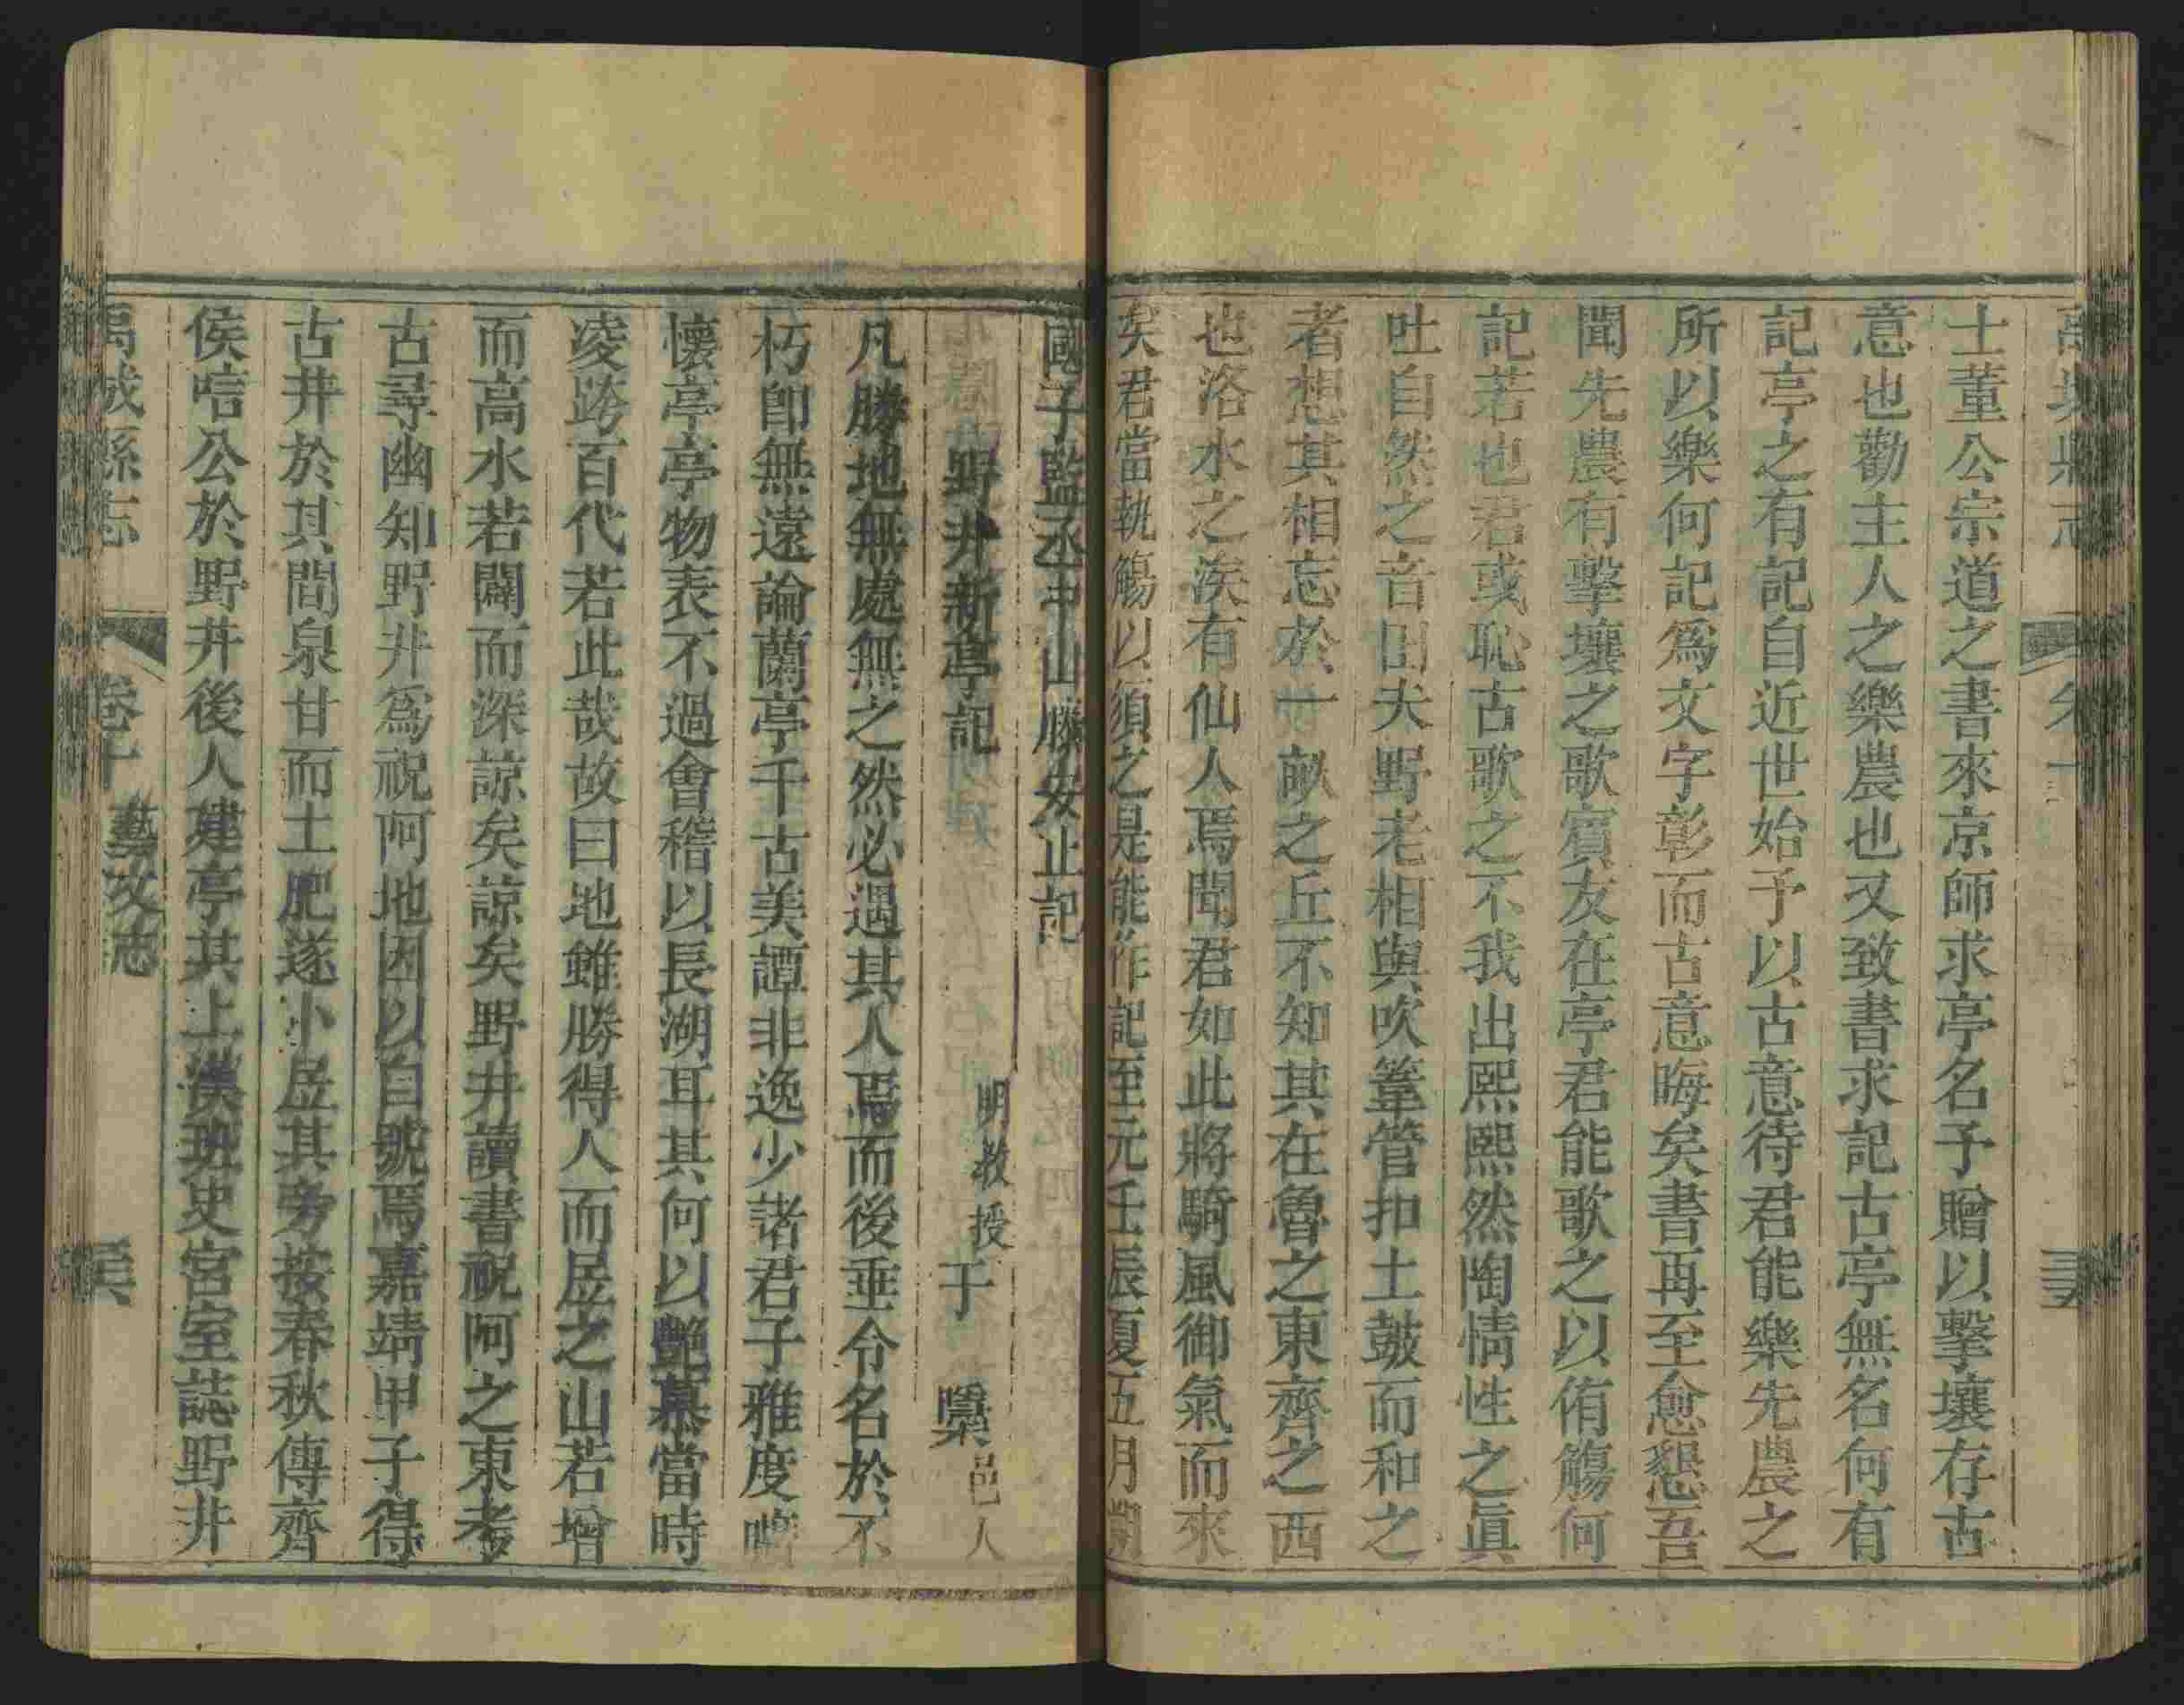 士董公宗道之書來京師求亭名予贈以擊壤存古
意也勸主人之樂農也又致書求記古亭無名何有
記亭之有記自近世始予以古意待君能樂先農之
所以樂何記爲文字彰而古意晦矣書再至愈懇吾
聞先農有擊壤之歌賓友在亭君能歌之以侑觴何
記若也君或恥古歌之不我出熙熙然陶情性之眞
吐自然之音田夫野老相與吹葦管扣土鼓而和之
者想其相忘於一畝之丘不知其在魯之東齊之西
也洛水之涘有仙人焉聞君如此將騎風御氣而來
矣君當執觴以須之是能作記至元壬辰夏五月
國子監丞中山滕安止記
野井新亭記 明教授于檗邑人
凡勝地無處無之然必遇其人焉而後垂令名於不
朽卽無遠論蘭亭千古美譚非逸少諸君子雅度
懷亭亭物表不過會稽以長湖耳其何以艷慕當時
凌跨百代若此哉故曰地雖勝得人而居之山若增
而高水若闢而深諒矣諒矣野井讀書祝阿之東考
古尋幽知野井爲祝阿地因以自號焉嘉靖甲子得
古井於其間泉甘而土肥遂小居其旁按春秋傳齊
侯唁公於野井後人建亭其上漢班史宮室誌野井
禹城縣志 卷十 藝文志